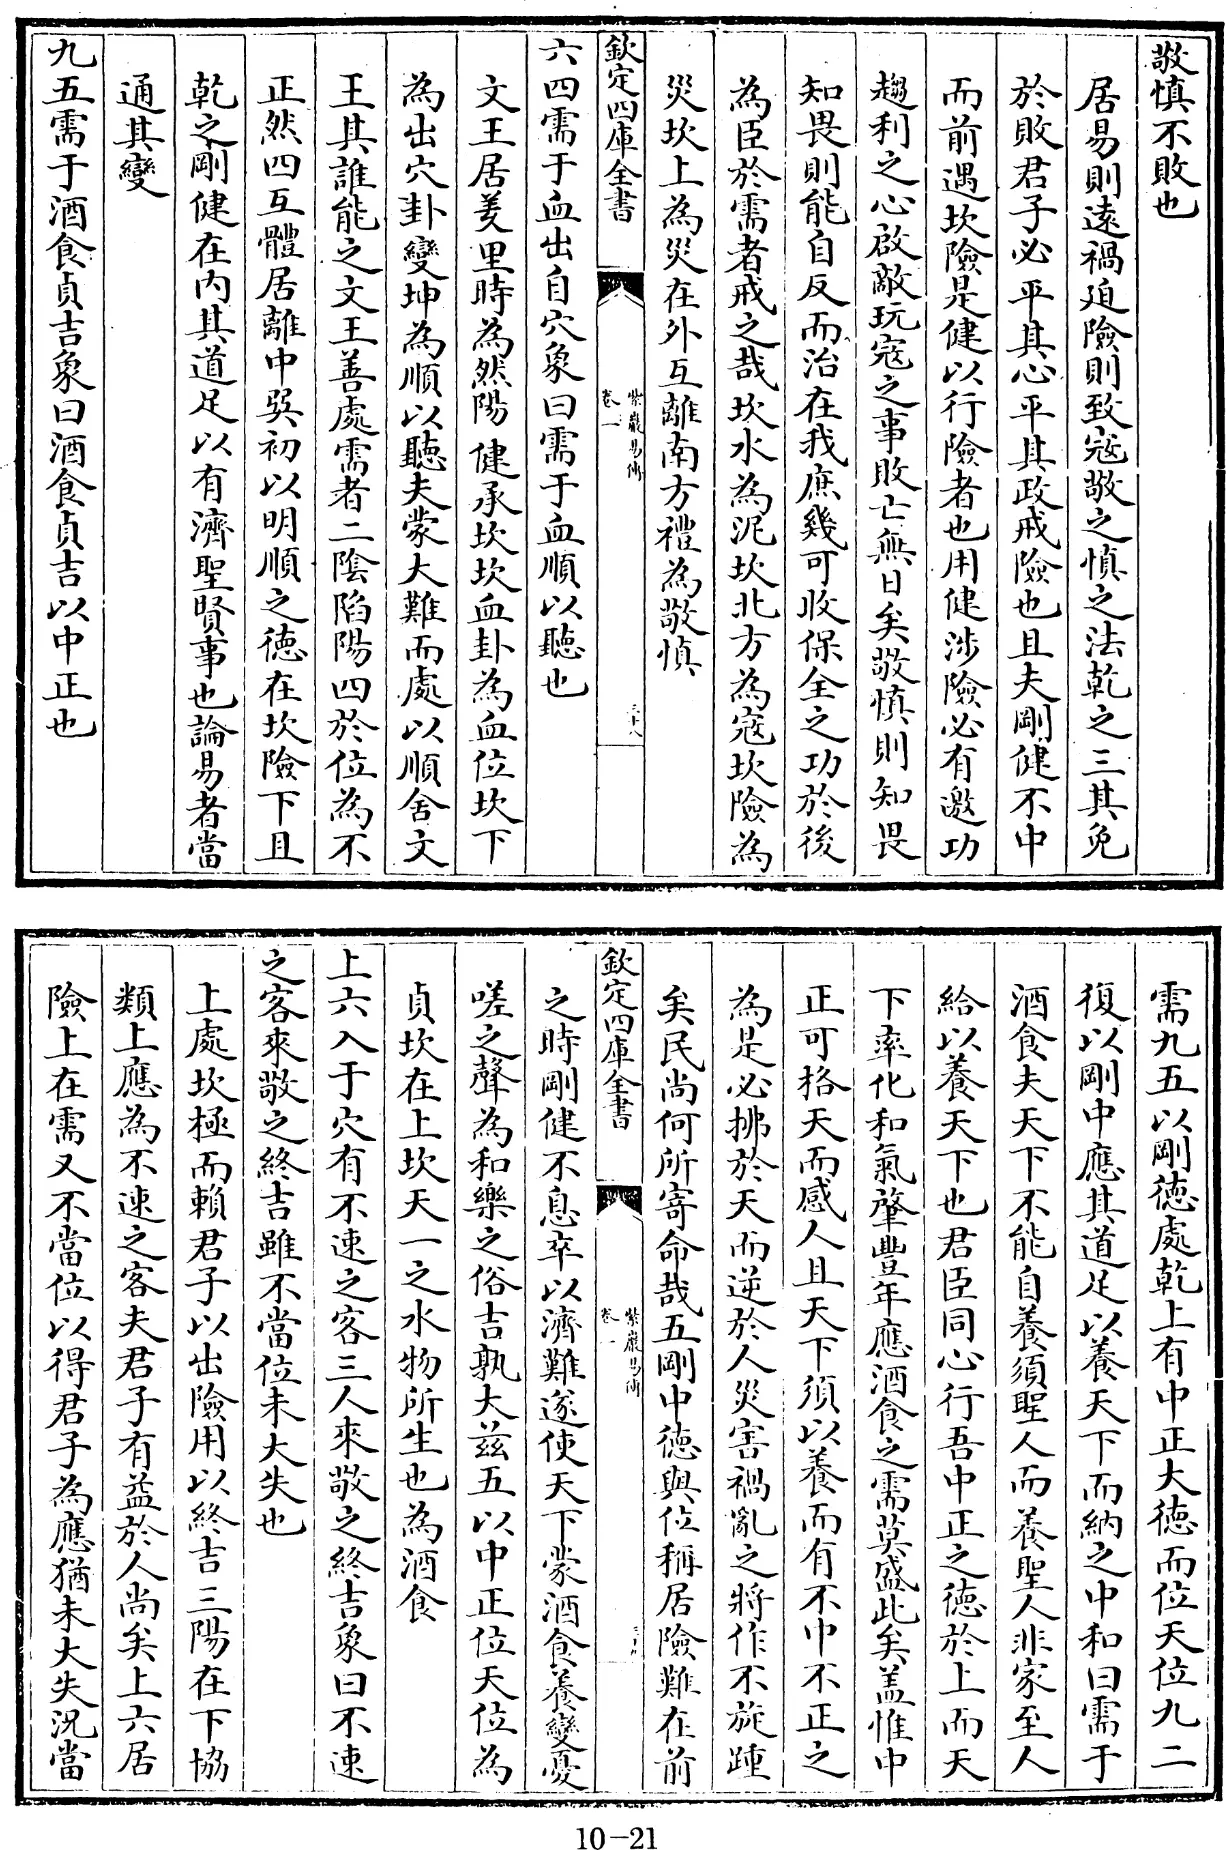 敬慎不敗也
居易則遠禍廹險則致寇敬之慎之法乾之三其免
於敗君子必平其心平其政戒險也且夫剛健不中
而前遇坎險是健以行險者也用健涉險必有邀功
趨利之心啟敵玩寇之事敗亡無日矣敬慎則知畏
知畏則能自反而治在我庶幾可收保全之功於後
為臣於需者戒之哉坎水為泥坎北方為寇坎險為
災坎上為災在外互離南方禮為敬慎
欽定四庫全書
紫巖易傳
卷一
三十八
六四需于血出自穴象曰需于血順以聽也
文王居羑里時為然陽健承坎坎血卦為血位坎下
為出穴卦變坤為順以聽夫蒙大難而處以順舍文
王其誰能之文王善處需者二陰陷陽四於位為不
正然四互體居離中巽初以明順之德在坎險下且
乾之剛健在內其道足以有濟聖賢事也論易者當
通其變
九五需于酒食貞吉象曰酒食貞吉以中正也
需九五以剛德處乾上有中正大德而位天位九二
復以剛中應其道足以養天下而納之中和曰需于
酒食夫天下不能自養須聖人而養聖人非家至人
給以養天下也君臣同心行吾中正之德於上而天
下率化和氣肇豐年應酒食之需莫盛此矣盖惟中
正可格天而感人且天下須以養而有不中不正之
為是必拂於天而逆於人災害禍亂之將作不旋踵
矣民尚何所寄命哉五剛中德與位稱居險難在前
欽定四庫全書
紫巖易傳
卷一
之時剛健不息卒以濟難遂使天下蒙酒食養變憂
嗟之聲為和樂之俗吉孰大茲五以中正位天位為
貞坎在上坎天一之水物所生也為酒食
上六入于穴有不速之客三人來敬之終吉象曰不速
之客來敬之終吉雖不當位未大失也
上處坎極而賴君子以出險用以終吉三陽在下協
類上應為不速之客夫君子有益於人尚矣上六居
險上在需又不當位以得君子為應猶未大失況當
10-21